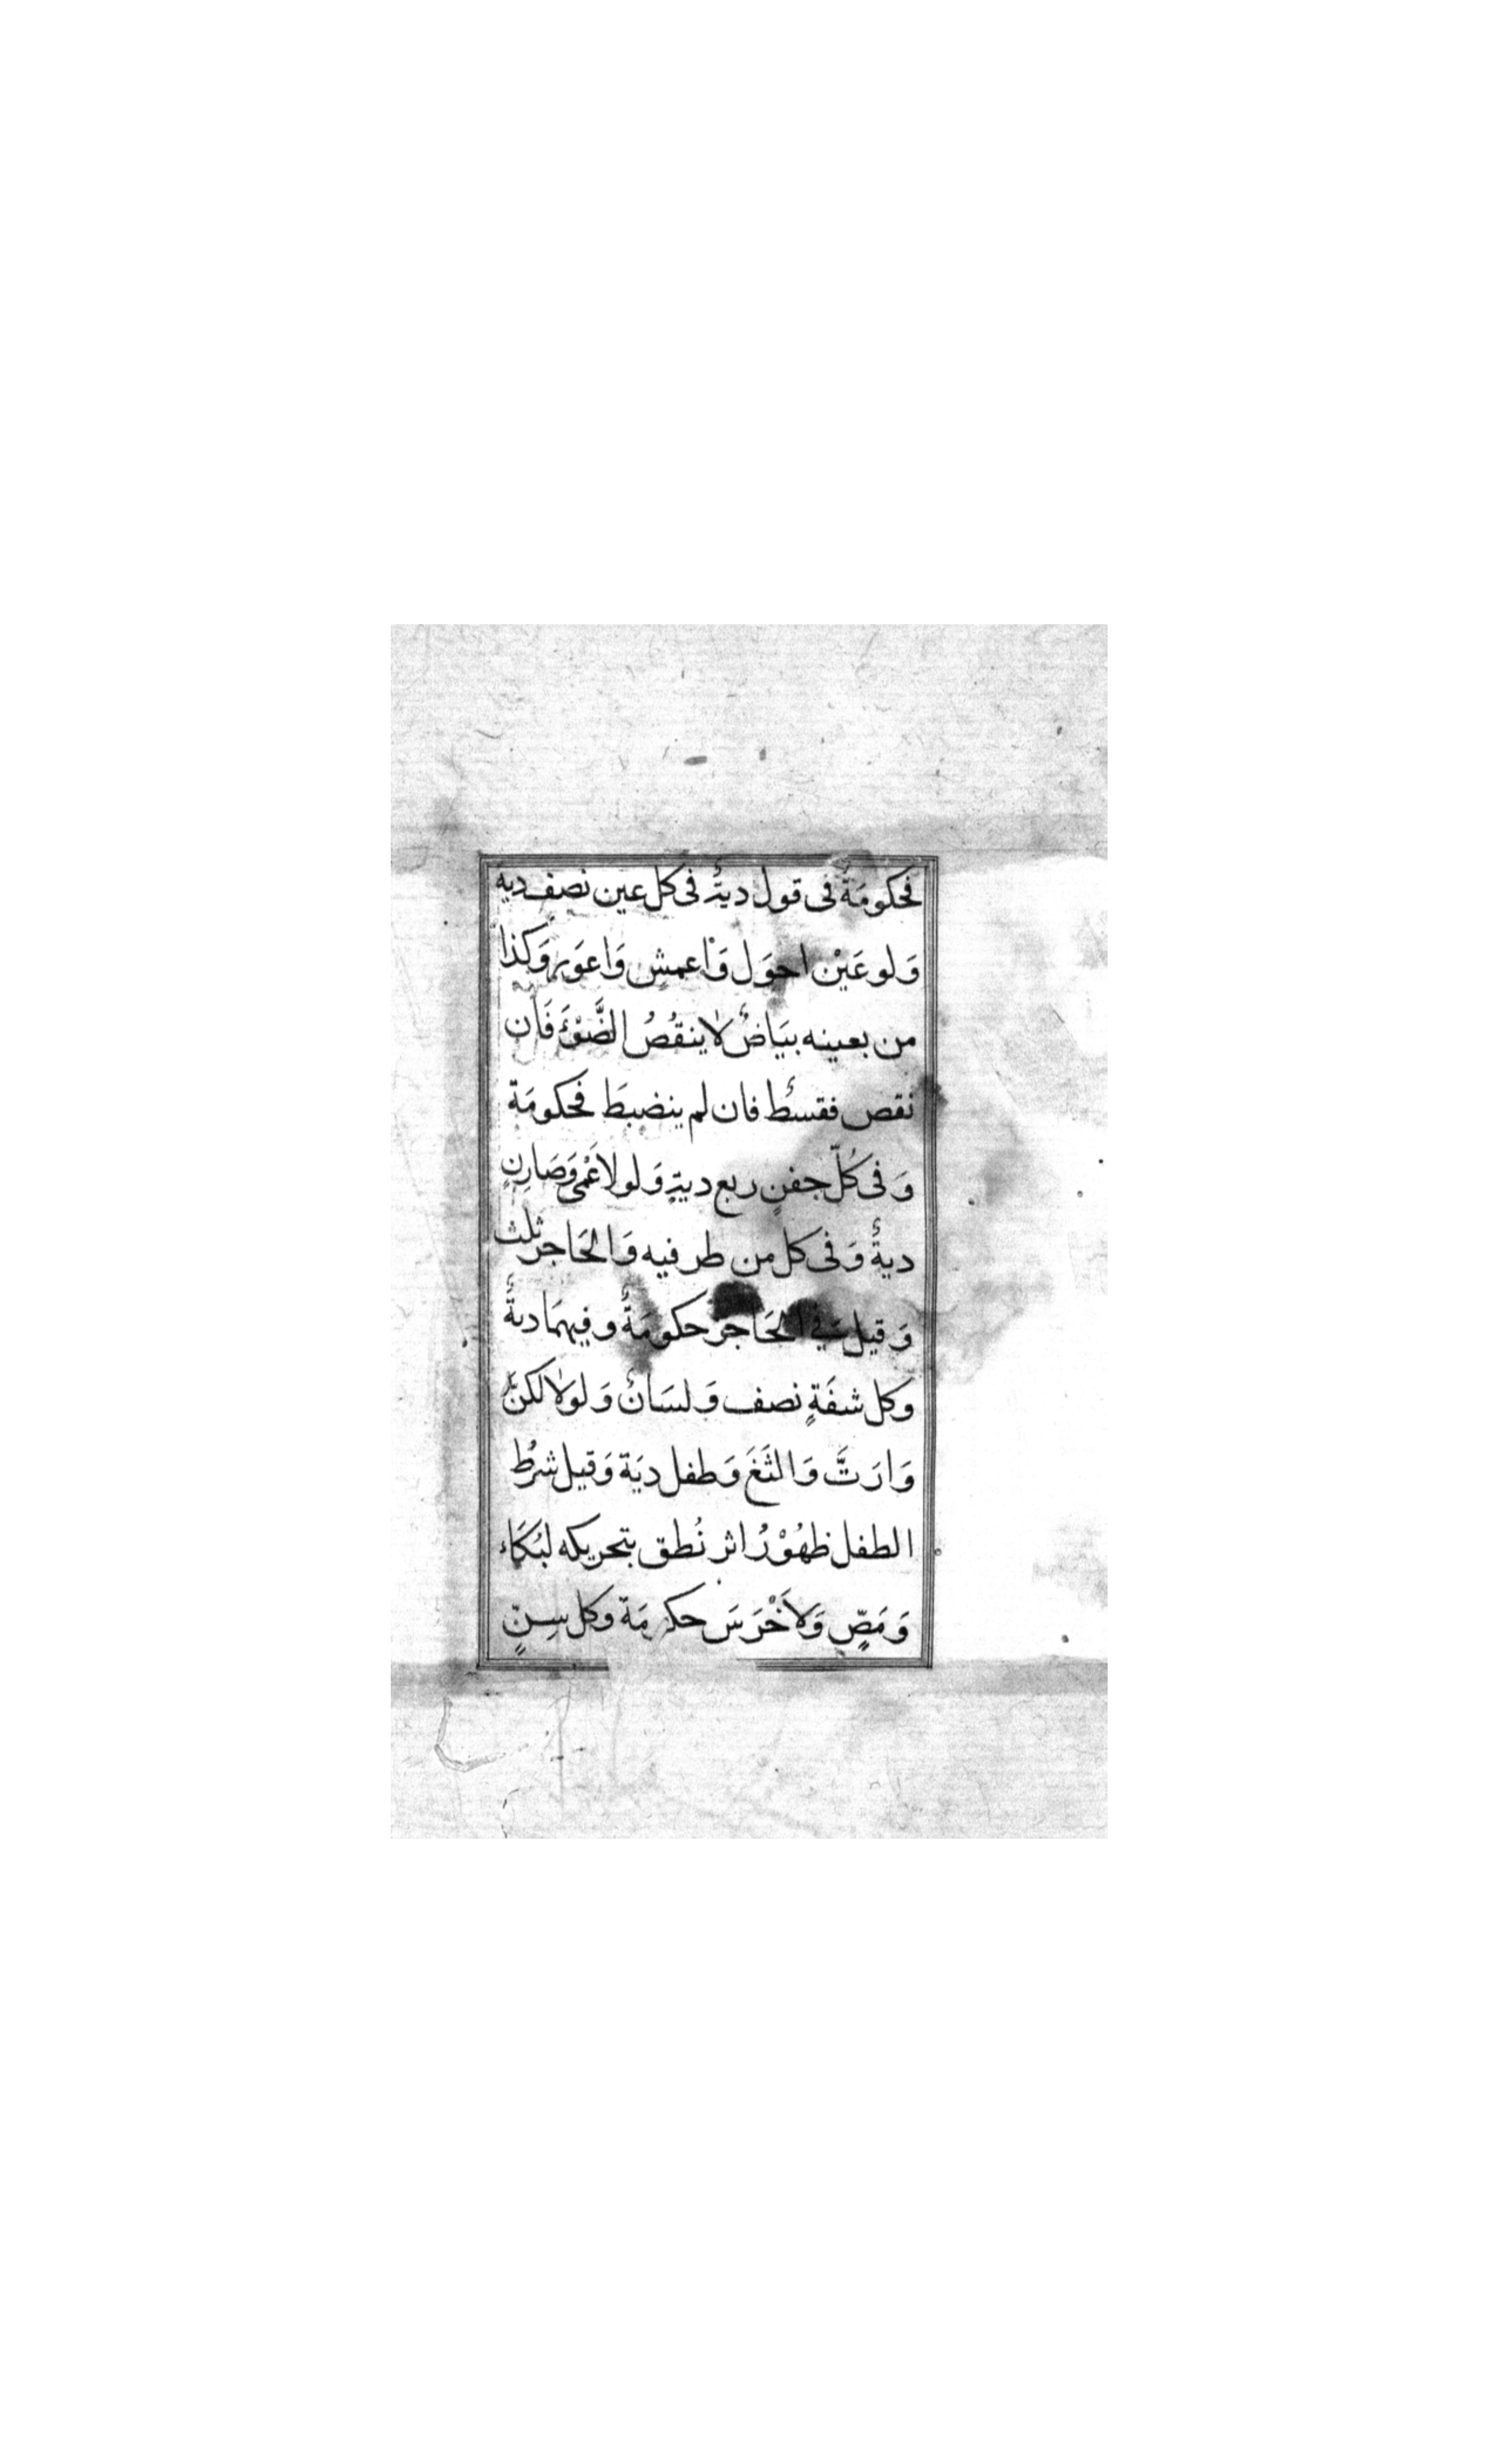 فحكومَةٌ فى قول ديةٌ فى كل عين نصف دية
وَلو عَيْن احوَل وَاعمش وَاعوَر وَكذا
من بعينه بيَاضٌ لا ينقُصُ الضَّوْءَ فَان
نقص فقسطٌ فان لم ينضبطَ فحكومَة
وَفى كُلّ جفنٍ ربع ديةٍ وَلو لاعْمى وَصَارِنٍ
ديةٌ وَفى كل من طرفيه وَالحَاجر ثلث
وَقيل فى الحَاجر حكومَةٌ وفيهمَا ديةٌ
وكل شفَةٍ نصف وَلسَانٌ وَلولالكنَّ
وَارَتَّ وَالثَغَ وَطفل ديَة وَقيل شرْطُ
الطفل ظهُوْرُ اثر نُطق بتحريكه لبُكَاء
وَمَصٍّ وَلاَخْرَسَ حكومَة وكل سِنٍّ